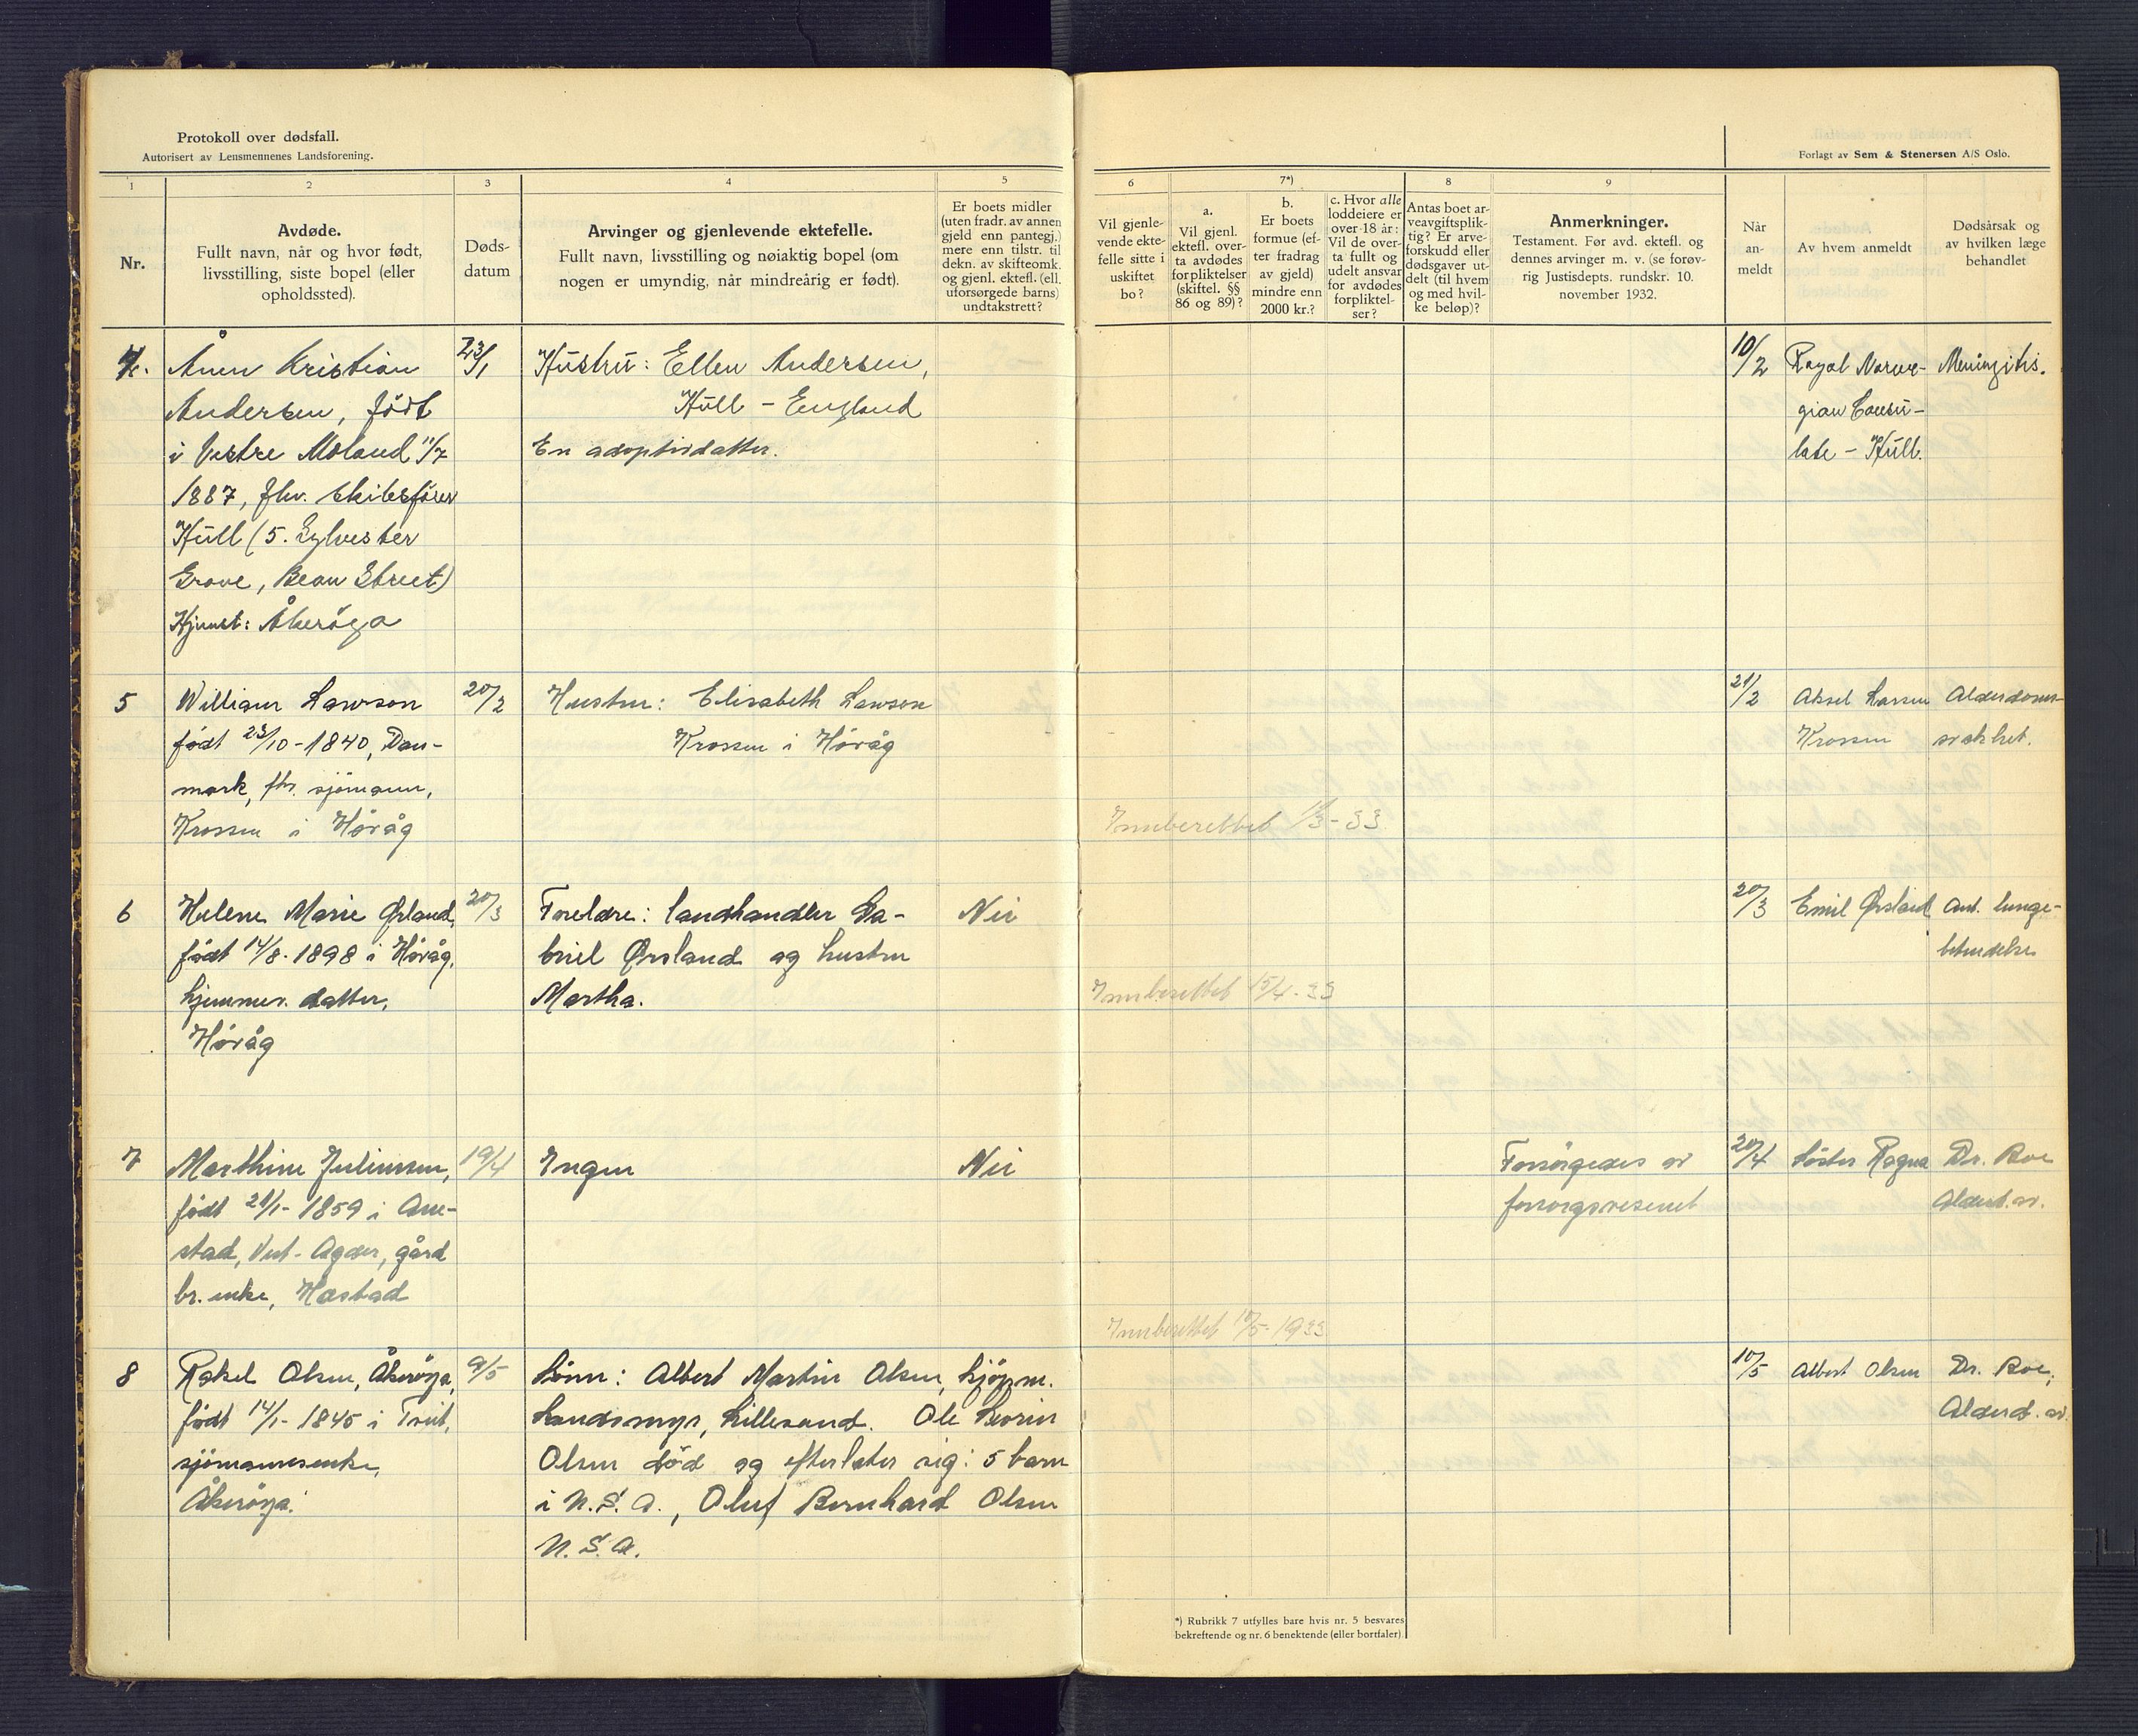 Protokoll over dødsfall.
Autorisert av Lensmennenes Landsforening.
Forlagt av Sem & Stenersen A/S Oslo.
1
2
3
4
5
6
7*)
8
9
Nr.
Avdøde.
Fullt navn, når og hvor født,
livsstilling, siste bopel (eller
opholdssted).
Døds-
datum
Arvinger og gjenlevende ektefelle.
Fullt navn, livsstilling og nøiaktig bopel (om
nogen er umyndig, når mindreårig er født).
Er boets midler
(uten fradr. av annen
gjeld enn pantegj.)
mere enn tilstr. til
dekn. av skifteomk.
og gjenl. ektefl. (ell.
uforsørgede barns)
undtakstrett?
Vil gjenle-
vende ekte-
felle sitte i
uskiftet
bo?
a.
Vil gjenl.
ektefl. over-
ta avdødes
forpliktelser
(skiftel. §§
86 og 89)?
b.
Er boets
formue (ef-
ter fradrag
av gjeld)
mindre enn
2000 kr.?
c. Hvor alle
loddeiere er
over 18 år:
Vil de over-
ta fullt og
udelt ansvar
for avdødes
forpliktel-
ser?
Antas boet ar-
veavgiftsplik-
tig? Er arve-
forskudd eller
dødsgaver ut-
delt (til hvem
og med hvil-
ke beløp)?
Anmerkninger.
Testament. Før avd. ektefl. og
dennes arvinger m. v. (se forøv-
rig Justisdepts. rundskr. 10.
november 1932.
Når
an-
meldt
Av hvem anmeldt
Dødsårsak og
av hvilken læge
behandlet
4.
Ånen Kristian
Andersen, født
i Vestre Moland 11/7
1887, fhv. skibsfører
Hull (5. Sylvester
Grove, Bean Street)
Hjemst: Åkerøya
23/1
Hustru: Ellen Andersen,
Hull - England
En adoptivdatter.
10/2
Royal Norwe-
gian Consu-
late - Hull.
Meningitis.
5
William Lawson
født 23/10-1840, Dan-
mark, fhv. sjømann,
Krossen i Høvåg
20/2
Hustru: Elisabeth Lawson
Krossen i Høvåg
21/2
Aksel Larsen
Krossen
Alderdoms-
svakhet.
Innberettet 11/3-33
6
Helene Marie Ørsland,
født 14/8-1898 i Høvåg,
hjemmev. datter,
Høvåg
20/3
Foreldre: landhandler Ga-
briel Ørsland og hustru
Martha.
Nei
20/3
Emil Ørsland
Aut. lunge-
betendelse
Innberettet 15/4-33
7
Marthine Juliussen,
født 21/1-1859 i
stad, Vest-Agder, gård
br. enke, Hæstad
19/4
Ingen
Nei
Forsørgedes av
forsorgsvesenet
20/4
Søster Ragna
Dr. Roe
Alderd. sv.
Innberettet 10/5-1933
8
Rakel Olsen, Åkerøya,
født 14/1-1845 i Tveit,
sjømannsenke,
Åkerøya.
9/5
Sønn: Albert Martin Olsen, kjøpm.
Sandsmyr, Lillesand. Ole Severin
Olsen død og efterlater sig: 5 barn
i U.S.A., Oluf Bernhard Olsen
U.S.A.
10/5
Albert Olsen
Dr. Roe,
Alderd. sv.
*) Rubrikk 7 utfylles bare hvis nr. 5 besvares
bekreftende og nr. 6 benektende (eller bortfaler)